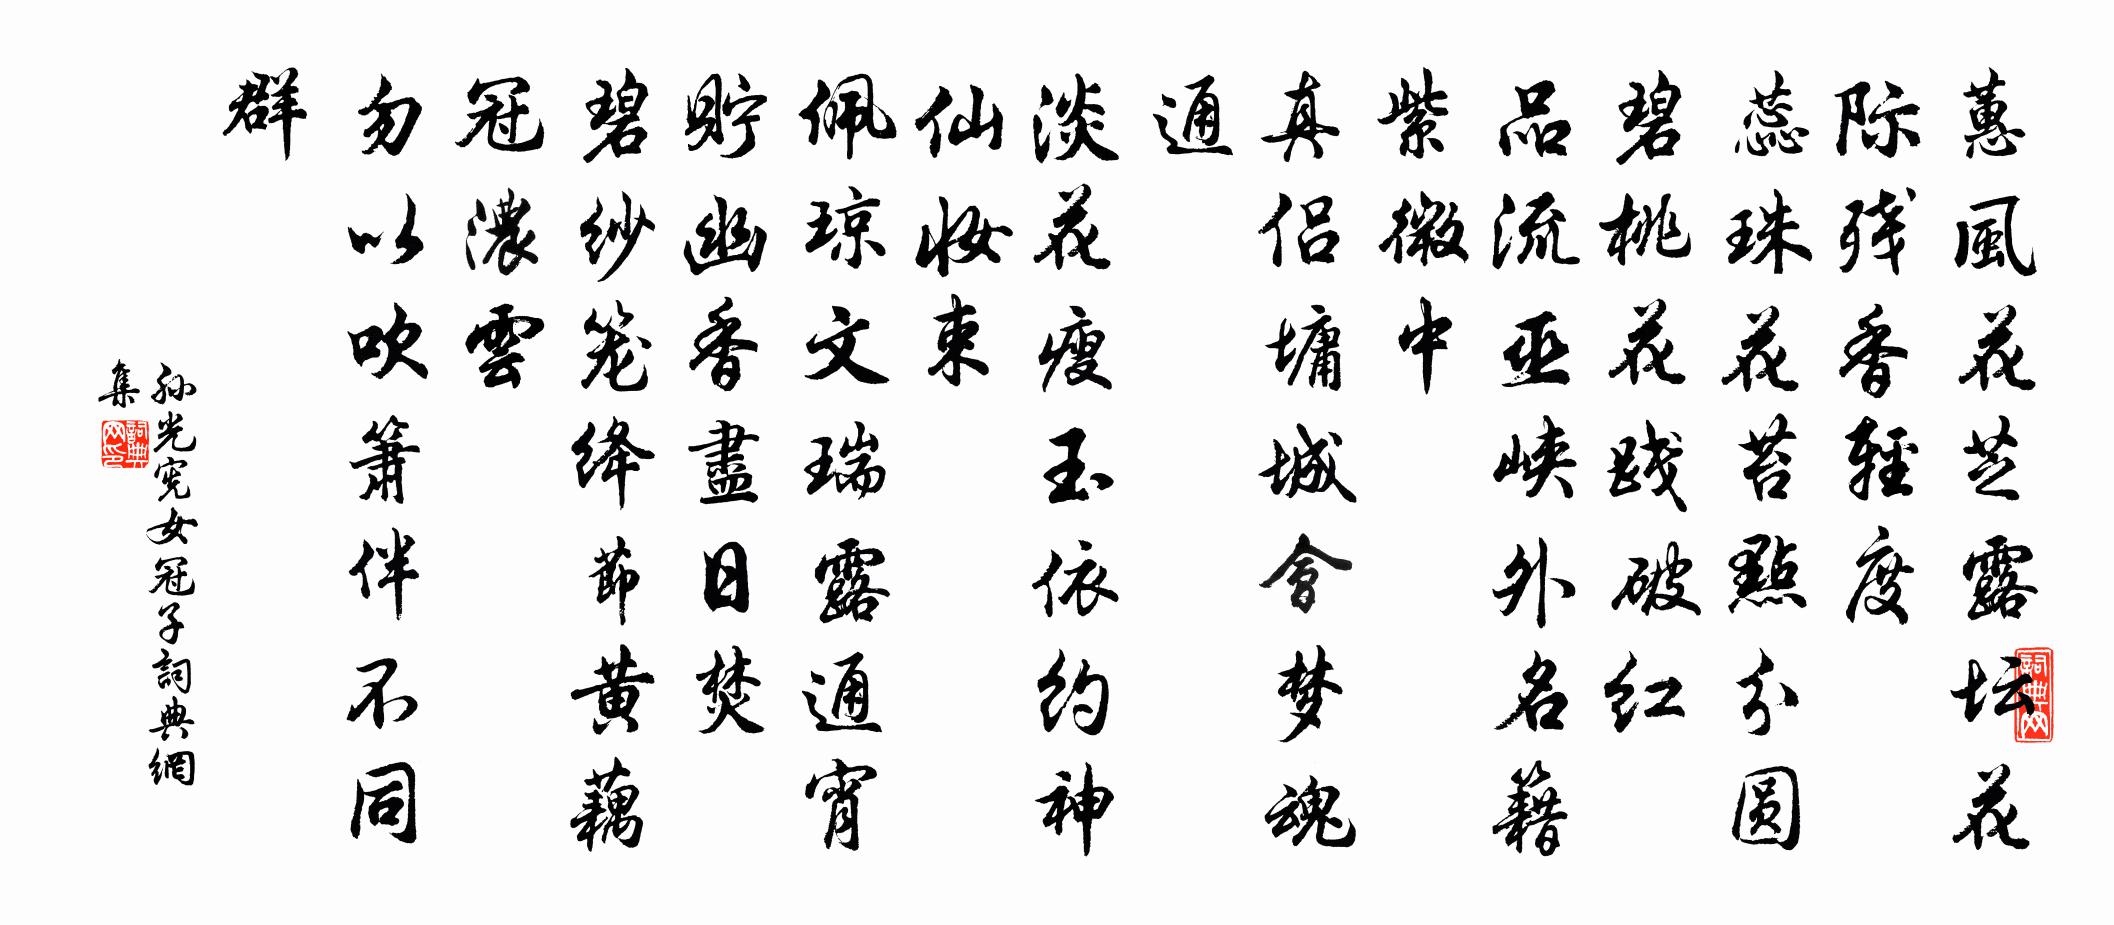 蕙風花芝露坛花
际残香輕度
蕊珠花苔點分圆
碧桃花踐破红
品流巫峡外名籍
紫微中
真侣墉城會梦魂
通
淡花瘦玉依约神
仙妝束
佩琼文瑞露通宵
貯幽香盡日焚
碧紗笼绛節黄藕
冠濃雲
勿以吹箫伴不同
群
孙光宪女冠子詞典網
集
詞典网
詞典网印